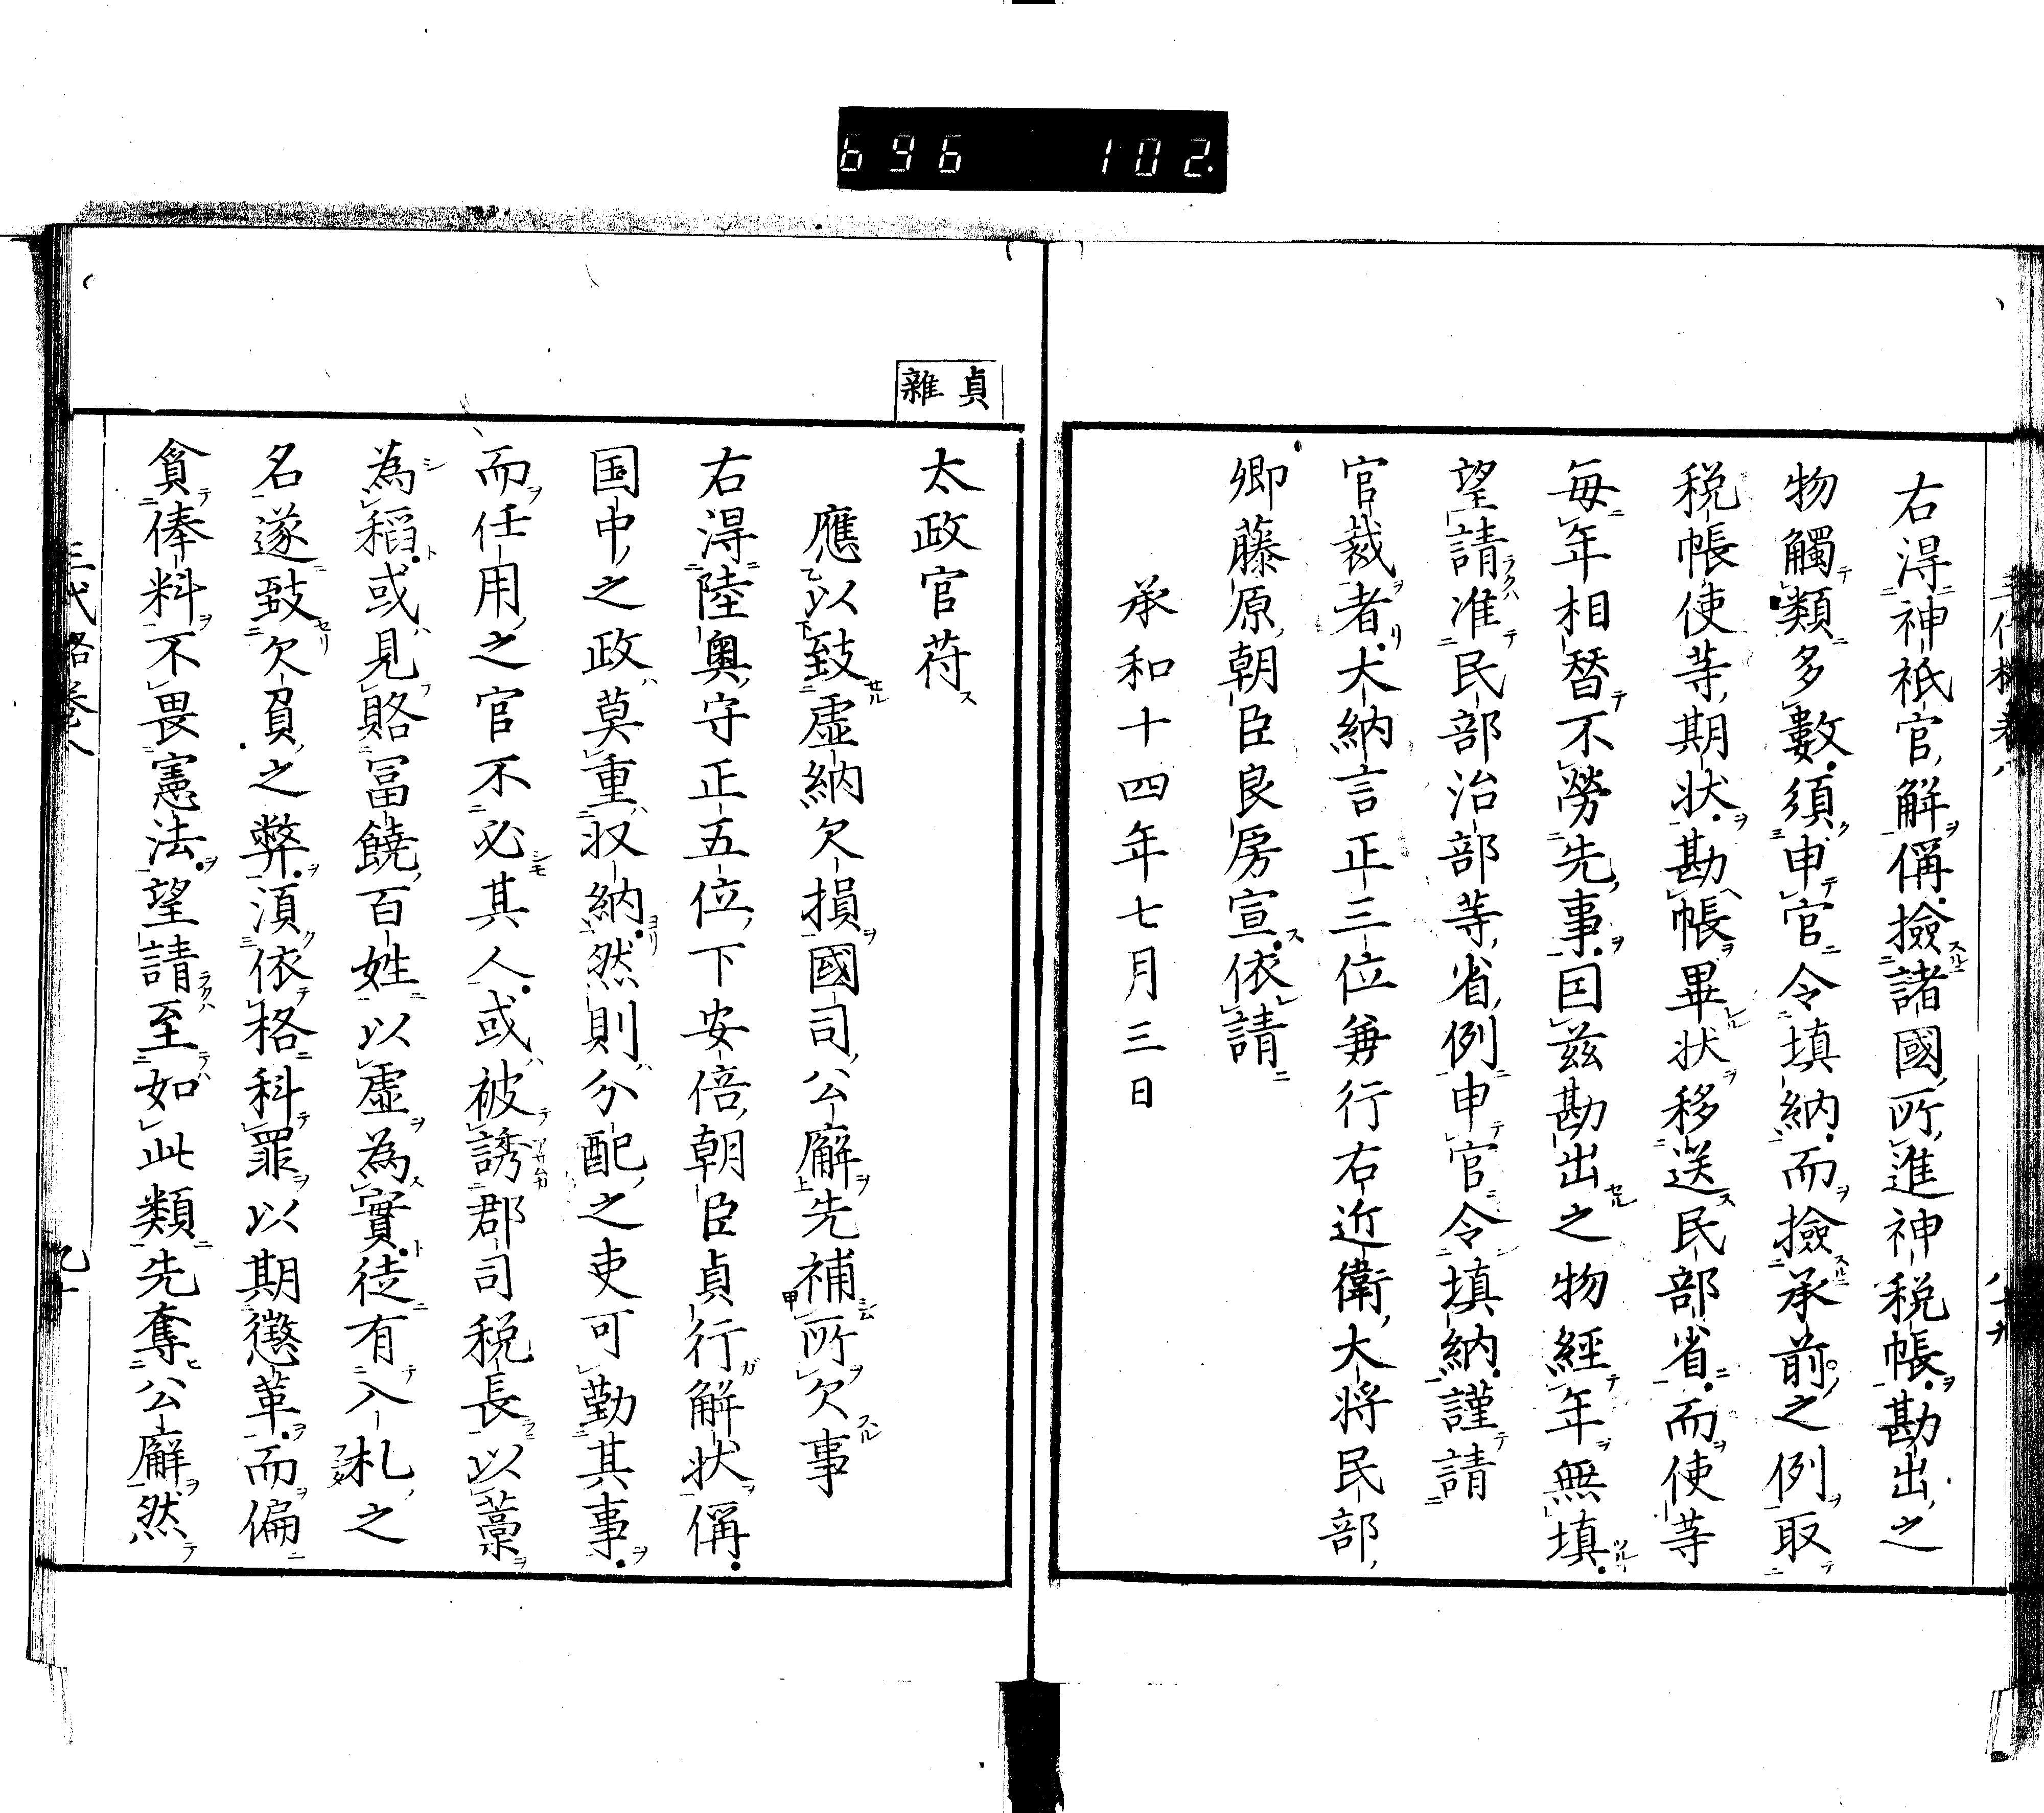 696 102
右得神祇官解偁撿諸國所進神税帳勘出之
物觸類多數須申官令填納而撿承前之例取
税帳使等期状勘帳畢状移送民部省而使等
毎年相替不勞先事因兹勘出之物經年無填
望請准民部治部等省例申官令填納謹請
官裁者大納言正三位兼行右近衛大将民部
卿藤原朝臣良房宣依請
承和十四年七月三日
貞
雜
太政官苻
應以致虚納欠損國司公廨先補所欠事
右得陸奥守正五位下安倍朝臣貞行解状偁
国中之政莫重収納然則分配之吏可勤其事
而任用之官不必其人或被誘郡司税長以藁
為稻或見賂冨饒百姓以虚為實徒有入札之
名遂致欠負之弊湏依格科罪以期懲革而偏
貪俸料不畏憲法望請至如此類先奪公廨然
三代格卷八